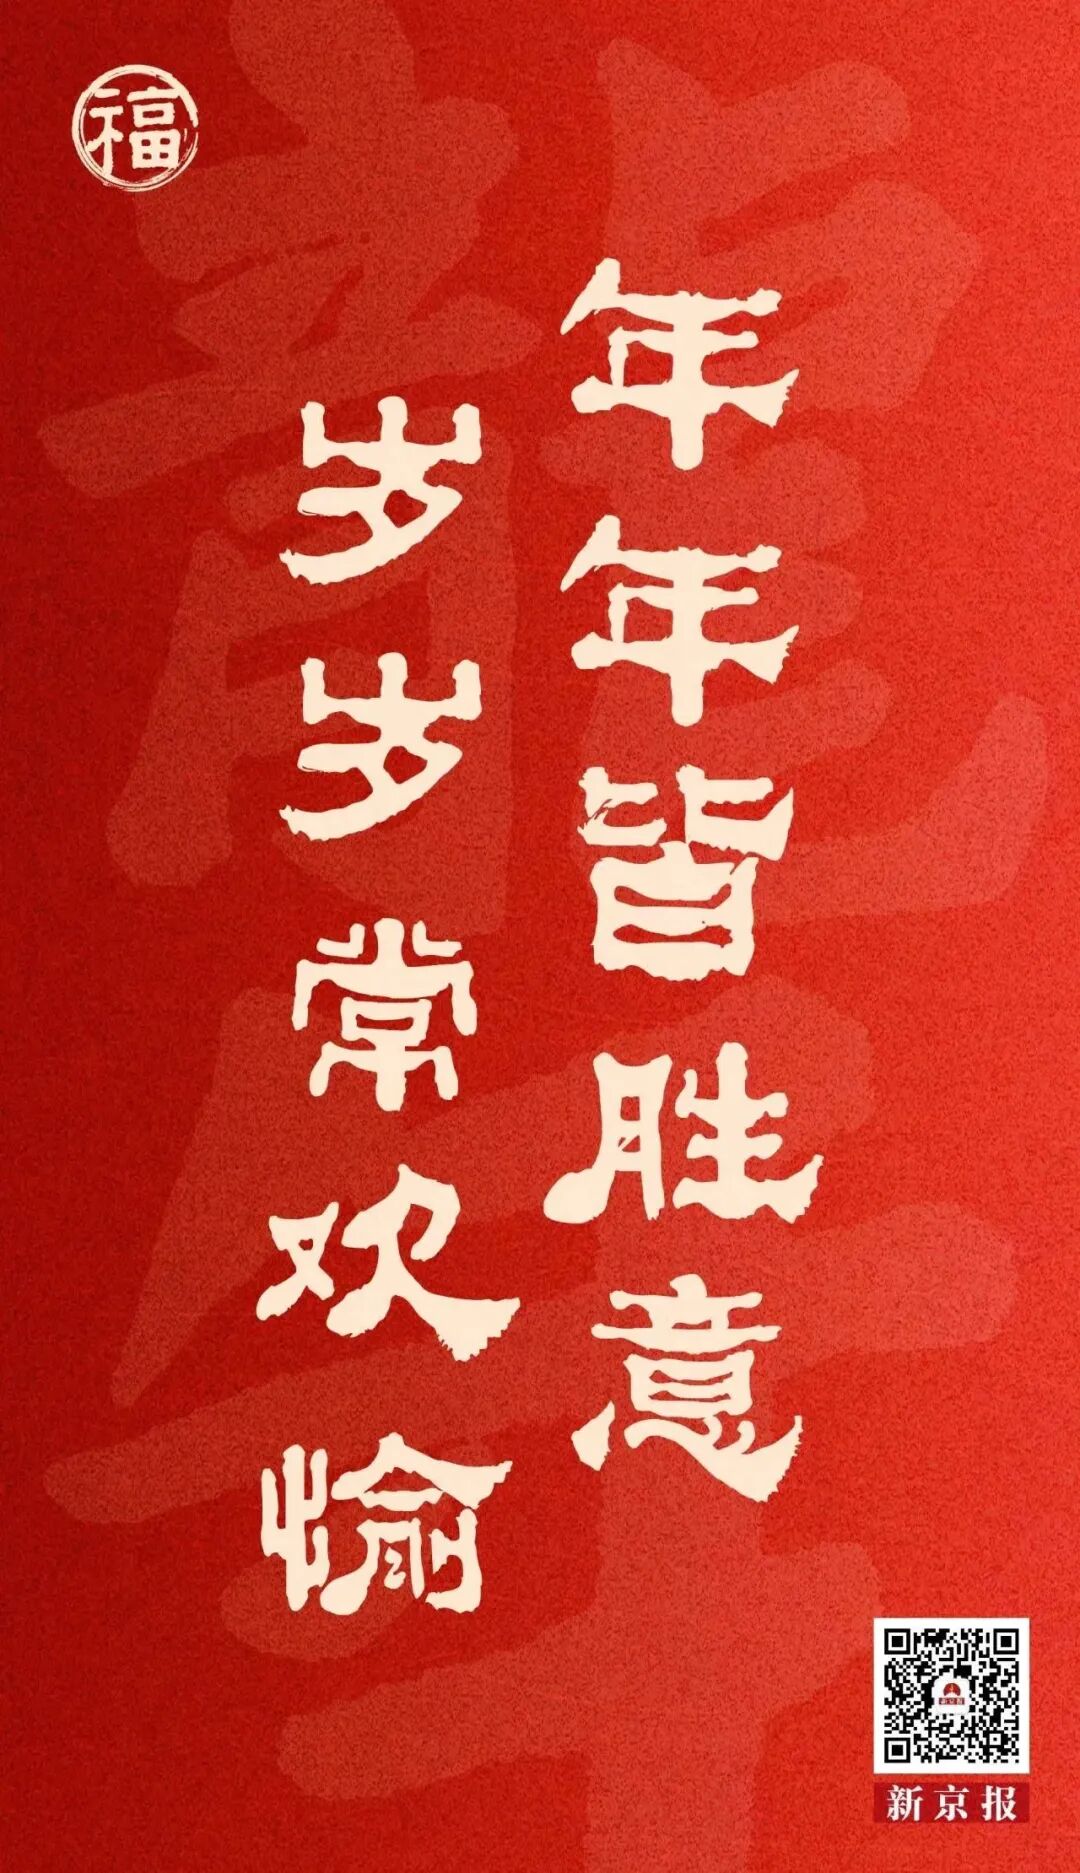 福
年年皆胜意
岁岁常欢愉
龍年
新京报